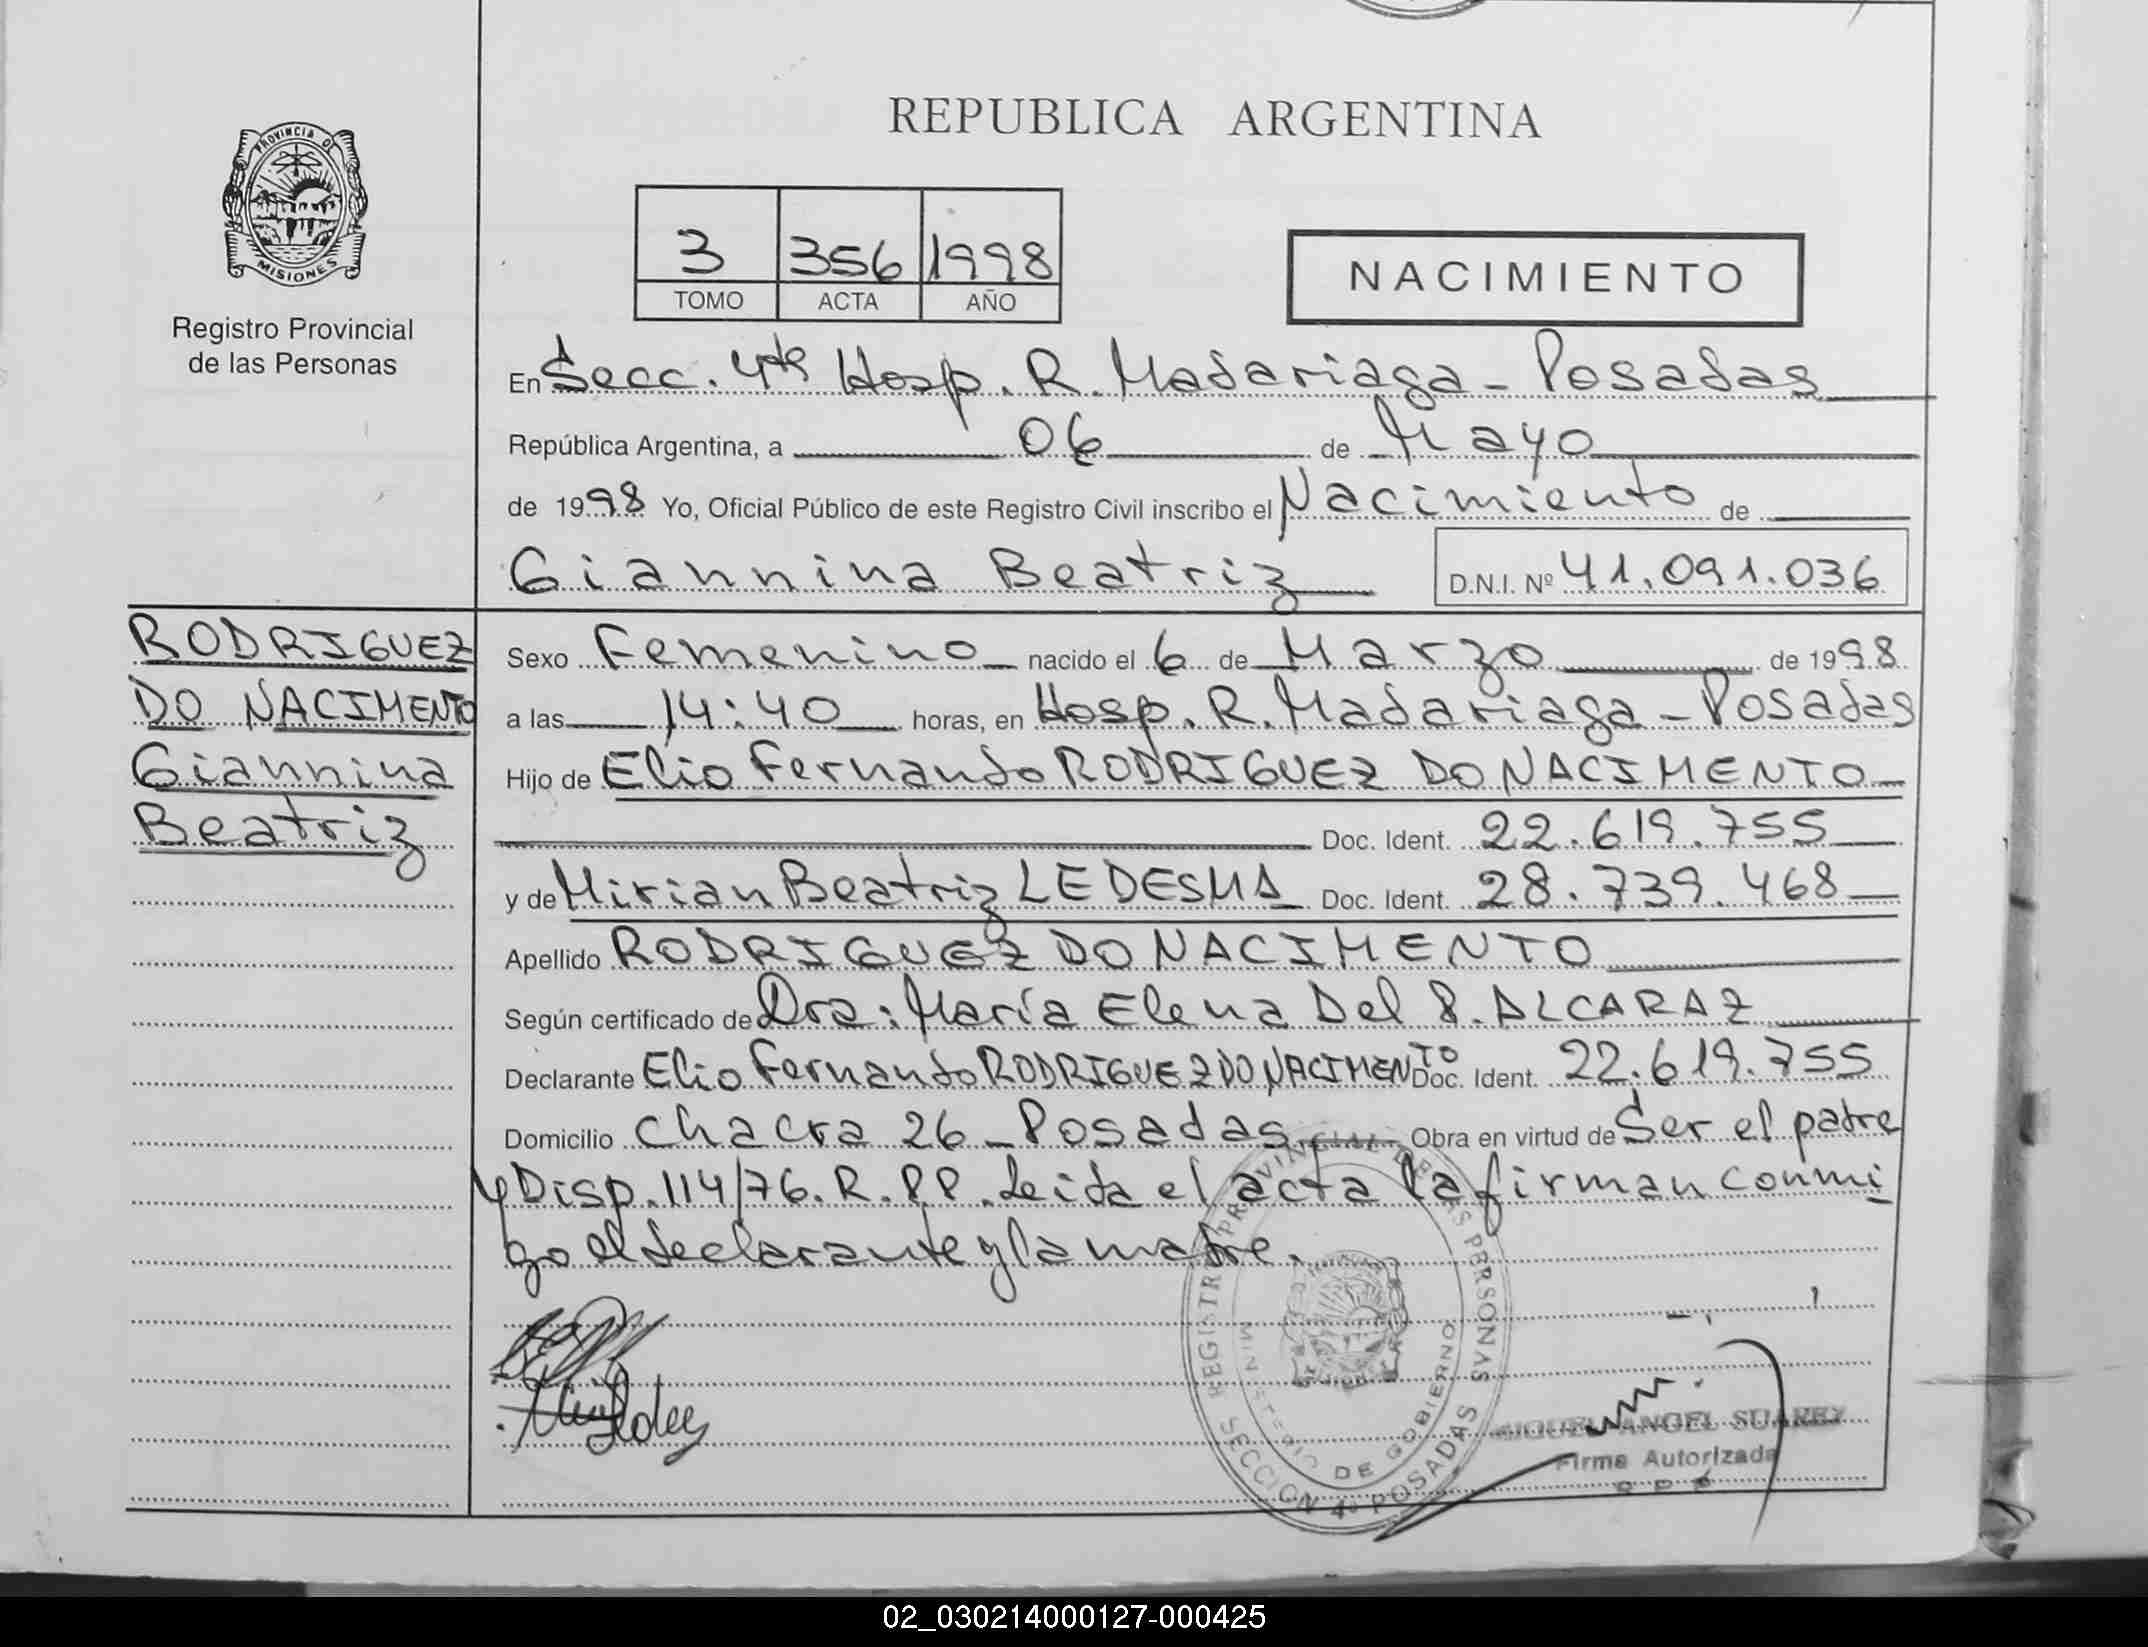 REPUBLICA ARGENTINA
PROVINCIA DE
MISIONES
Registro Provincial
de las Personas
3 356 1998
TOMO ACTA AÑO
NACIMIENTO
En Secc. 4ta Hosp. R. Madariaga - Posadas
República Argentina, a 06 de Mayo
de 1998 Yo, Oficial Público de este Registro Civil inscribo el Nacimiento de
Giannina Beatriz D.N.I. Nº 41.091.036
RODRIGUEZ
DO NACIMENTO
Giannina
Beatriz
Sexo Femenino nacido el 6 de Marzo de 1998
a las 14:40 horas, en Hosp. R. Madariaga - Posadas
Hijo de Elio Fernando RODRIGUEZ DO NACIMENTO
Doc. Ident. 22.619.755
y de Mirian Beatriz LEDESMA Doc. Ident. 28.739.468
Apellido RODRIGUEZ DO NACIMENTO
Según certificado de Dra: María Elena Del R. ALCARAZ
Declarante Elio Fernando RODRIGUEZ DO NACIMENTO Doc. Ident. 22.619.755
Domicilio Chacra 26 - Posadas Obra en virtud de Ser el padre
y Disp. 114/76. R.P.P. Leida el acta la firman conmi
go el declarante y la madre.
REGISTRO PROVINCIAL DE LAS PERSONAS
MINISTERIO DE GOBIERNO
SECCION 4ª POSADAS
MIGUEL ANGEL SUAREZ
Firma Autorizada
02_030214000127-000425